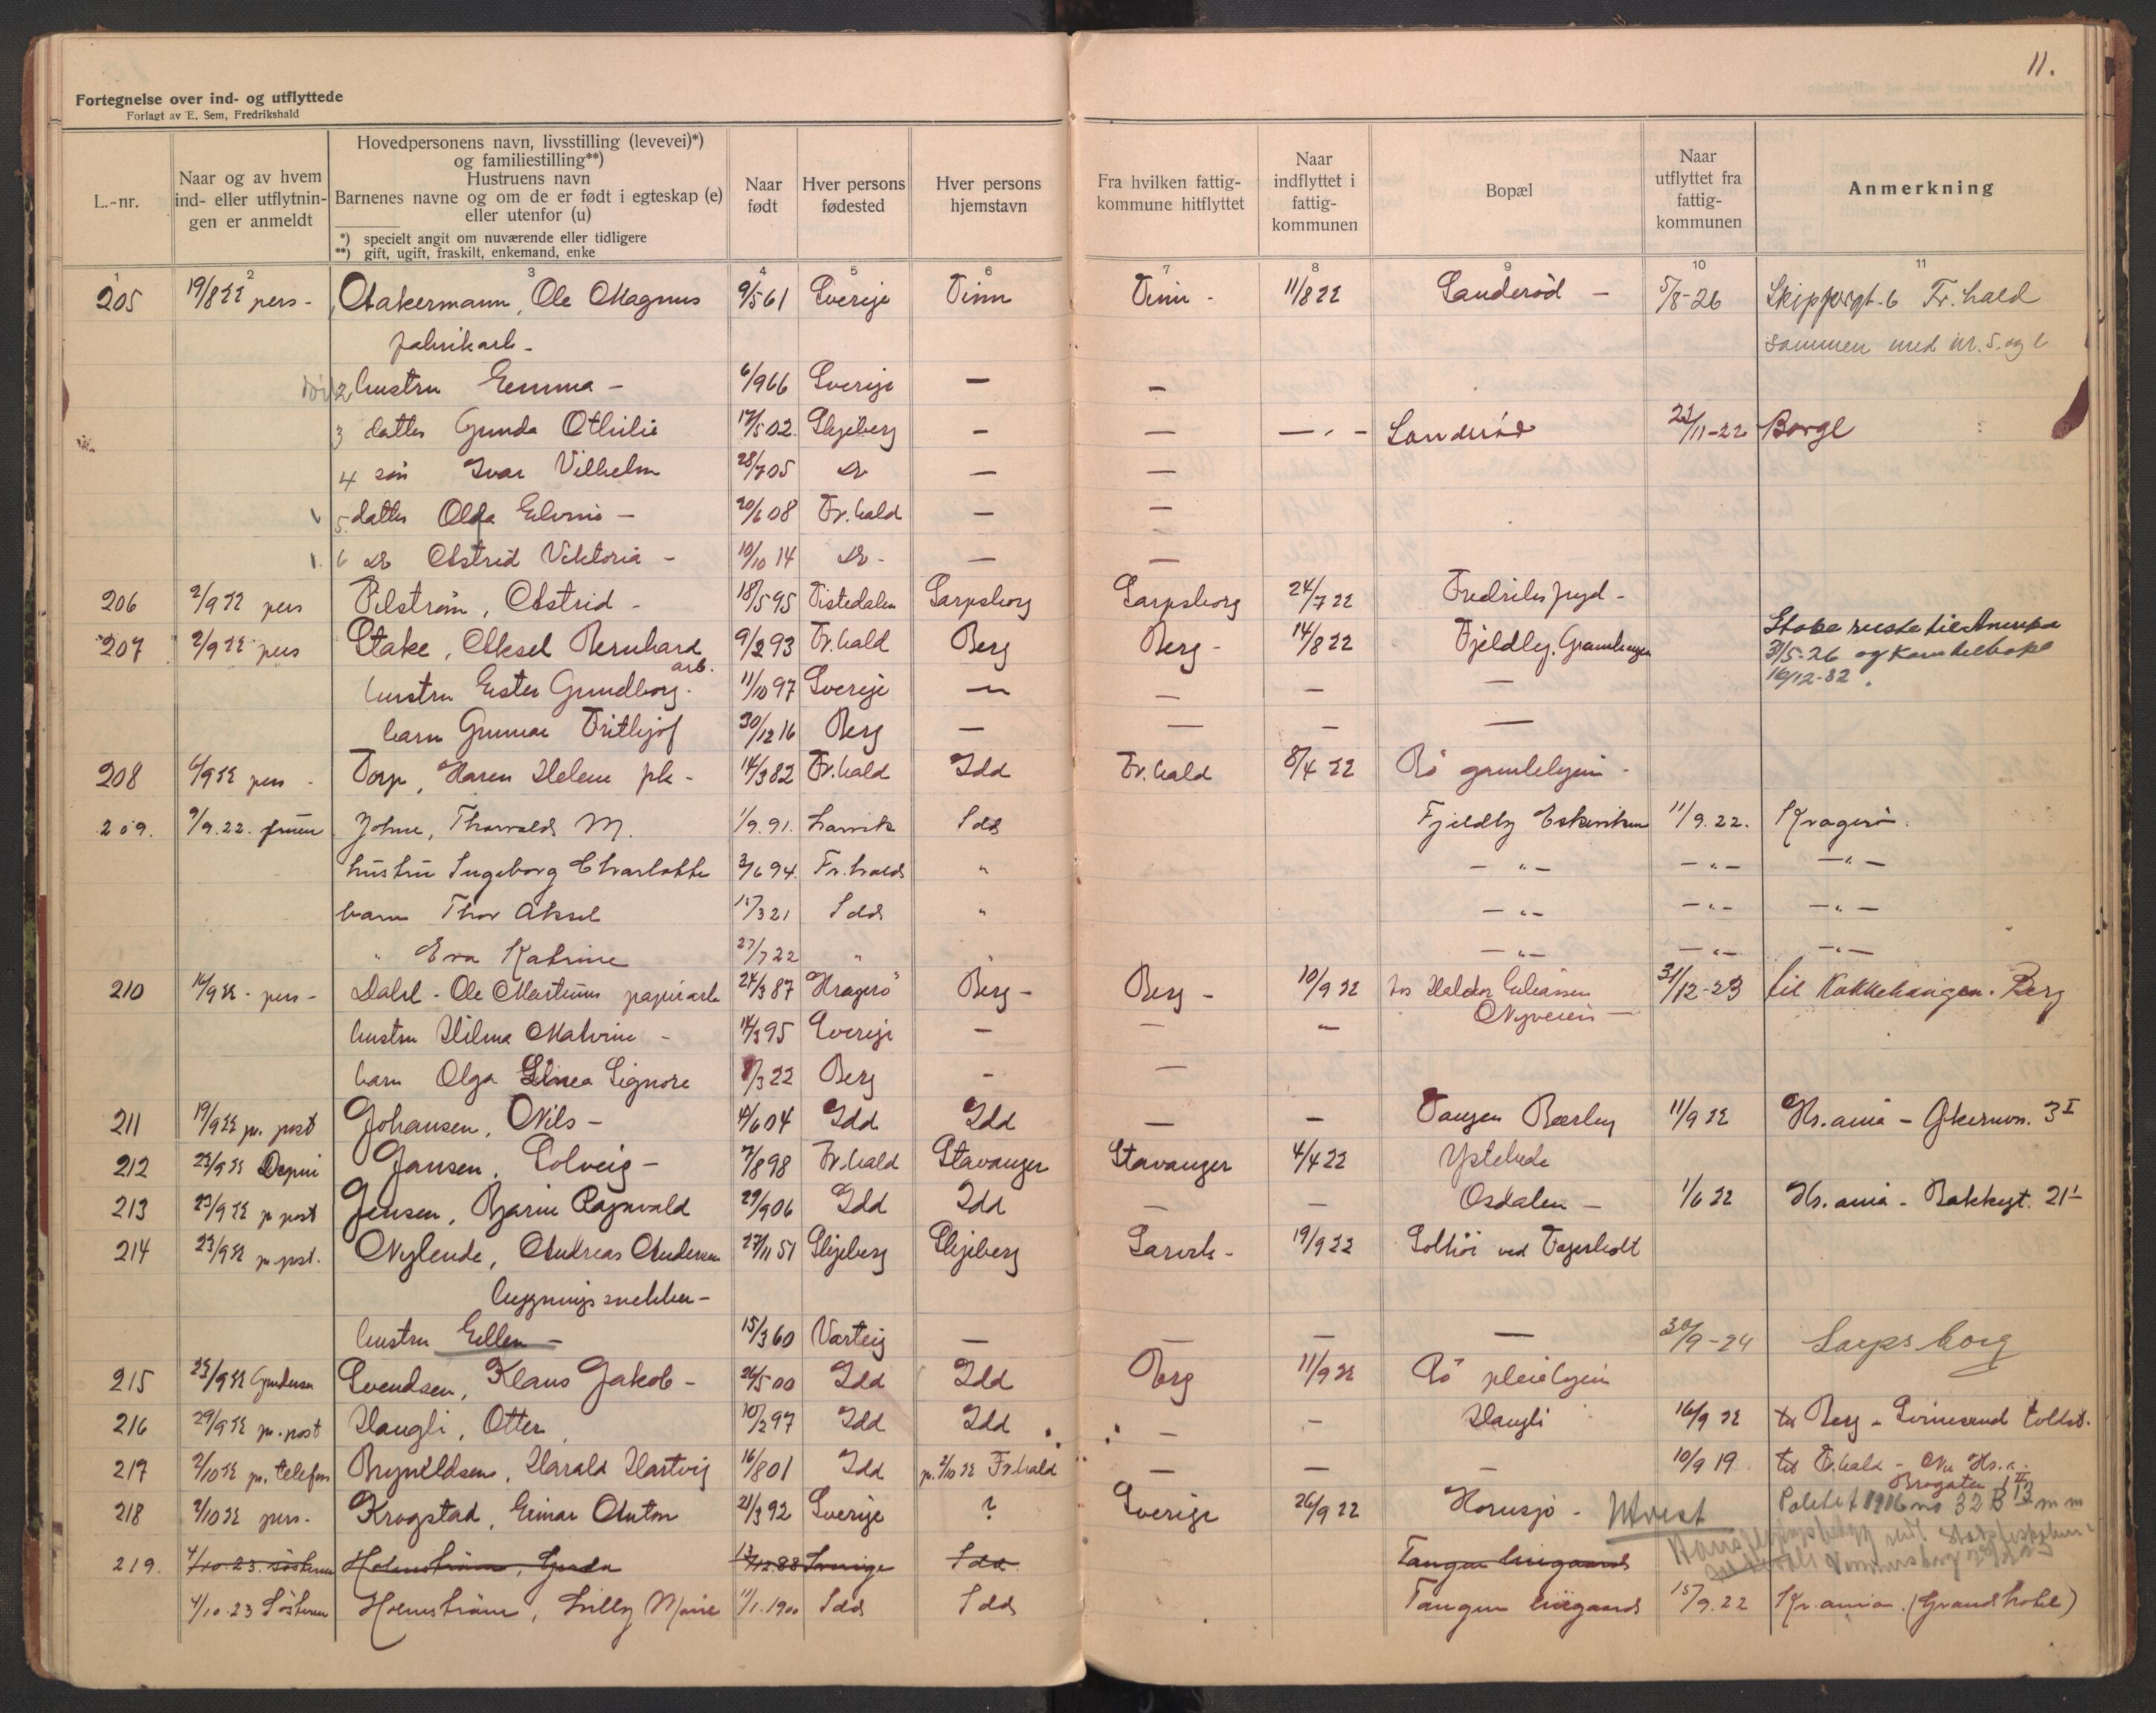 11.
Fortegnelse over ind- og utflyttede
Forlagt av E. Sem, Fredrikshald
L.-nr.
Naar og av hvem ind- eller utflytnin-gen er anmeldt
Hovedpersonens navn, livsstilling (levevei)*) og familiestilling**)
Hustruens navn
Barnenes navne og om de er født i egteskap (e) eller utenfor (u)
*) specielt angit om nuværende eller tidligere
**) gift, ugift, fraskilt, enkemand, enke
Naar født
Hver persons fødested
Hver persons hjemstavn
Fra hvilken fattig-kommune hitflyttet
Naar indflyttet i fattig-kommunen
Bopæl
Naar utflyttet fra fattig-kommunen
Anmerkning
1 2 3 4 5 6 7 8 9 10 11
205 19/8 22 pers - Aakermann, Ole Magnus 9/5 61 Sverije Tinn Tinn - 11/8 22 Sanderød - 5/8-26 Skippergt. 6 Fr.hald
fabrikarb - sammen med nr. 5 og 6
2 hustru Emma - 6/9 66 Sverije - -
3 datter Gunda Othilie 17/5 02 Skjeberg - - - " - Sanderød 23/11-22 Borge
4 søn Ivar Vilhelm 28/7 05 Do - -
5 datter Olga Elvine - 20/6 08 Fr.hald - -
6 Do Astrid Viktoria - 10/10 14 Do - - -
206 2/9 22 pers Pilstrøm, Astrid - 18/5 95 Tistedalen Sarpsborg Sarpsborg 24/7 22 Fredriksfryd -
207 2/9 22 pers Stake, Aksel Bernhard arb. 9/2 93 Fr.hald Berg Berg - 14/8 22 Fjeldby. Stake reiste til Amerika
31/5-26 og kom tilbake
hustru Ester Gundborg. 11/10 97 Sverije - - - - 16/12-32.
barn Gunnar Frithjof 30/12 16 Berg - - - -
208 6/9 22 pers - Torp, Karen Helene pk - 14/3 82 Fr.hald Idd Fr.hald 8/4 22 Rø gamlehjem -
209. 9/9.22. fruen Johne, Thorvald M. 1/9.91. Larvik Idd Fjeldby Eskeviken 11/9.22. Kragerø.
hustru Ingeborg Charlotte 3/6 94. Fr.hald " - " - - " - - " -
barn Thor Aksel 15/3 21 Idd " - " - - " - - " -
" Eva Katrine 27/7 22 " " - " - - " - - " -
210 14/9 22 - pers - Dahl - Ole Martinus papirarb 24/3 87 Kragerø Berg - Berg - 10/9 22 hos Haldor Eliassen 31/12-23 til Kakkehaugen. Berg
Nyveien -
hustru Hilma Malvine - 14/3 95 Sverije - - -
barn Olga Linea Signore 8/3 22 Berg - -
211 19/9 22 pr. post Johansen, Nils - 4/6 04 Idd Idd - - Tangen Bærby 11/9 22 Kr.ania - Akersvn. 3 I
212 23/9 22 Jansen, Solveig - 7/8 98 Fr.hald Stavanger Stavanger 4/4 22 Ystehede
213 23/9 22 pr post Jensen, Bjarne Ragnvald 29/9 06 Idd Idd - - Osdalen - 1/6 22 Kr.ania - Bakkegt. 21 I
214 23/9 22 pr. post. Nylende, Andreas Andersen 27/11 51 Skjeberg Skjeberg 19/9 22 Solhøi ved Fagerholt
bygningssnekker -
hustru Ellen - 15/3 60 Varteig - - - - 30/9-24 Sarpsborg
215 23/9 22 Gundersen Svendsen, Klaus Jakob - 26/5 00 Idd Idd Berg 11/9 22 Rø pleiehjem
216 29/9 22 pr. post Haugli, Otter 10/2 97 Idd Idd - - Haugli 16/9 22 til Berg - Svinesund toldst.
217 2/10 22 pr. telefon Brynildsen, Harald Hartvig 16/8 01 Idd pr. 2/10 22 Fr.hald - - - 10/9 19 til Fr.hald - Nu Kr.a.
Brogaten 13 II
218 2/10 22 pers - Krogstad, Einar Anton 21/3 92 Sverije ? Sverige 26/9 22 Hornsjø - Utvist
219. 4/10.23. søsteren Holmstrøm, Gerda 13/12.88 Sverige Idd Tangen liregaard
4/10.23 Søsteren Holmstrøm, Lilly Marie 11/1.1900 Idd Idd Tangen liregaard 15/9.22 Kr.ania. (Grand hotel)